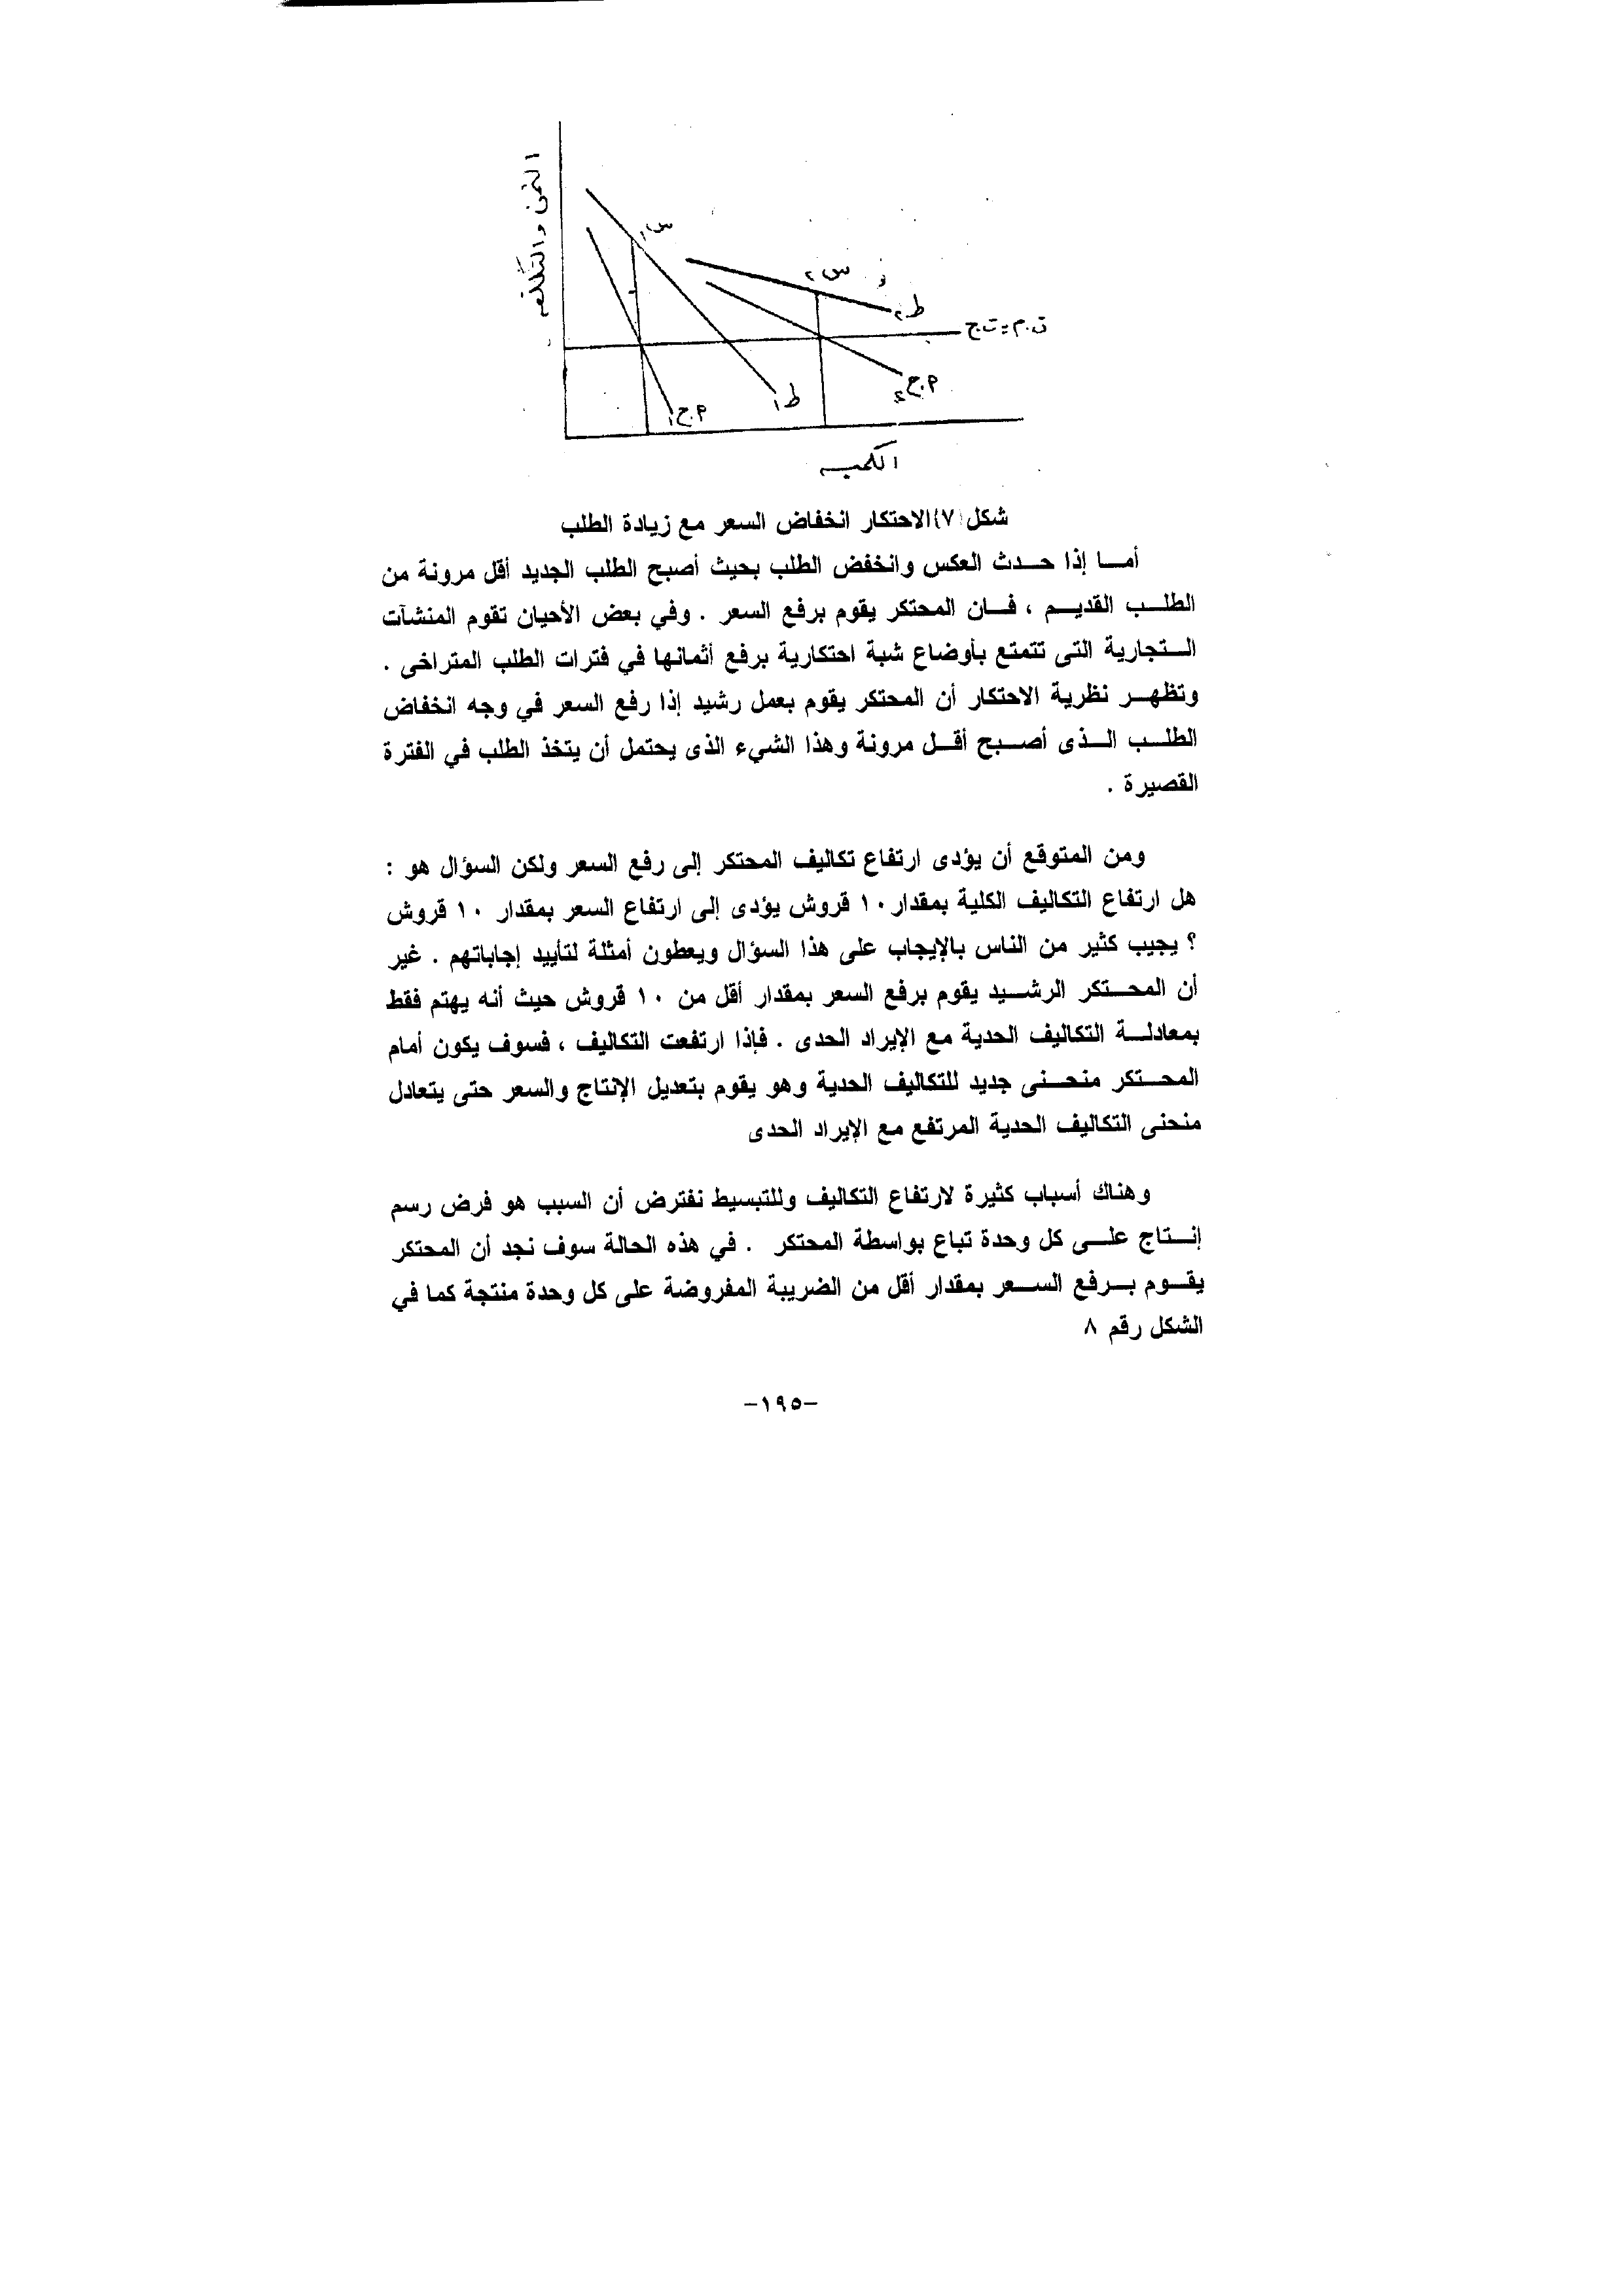 الثمن والتكلفه
س١
س٢
ط٢
ت.م=ت.ح
م.ح٢
ط١
م.ح١
الكميه
شكل (٧) الاحتكار انخفاض السعر مع زيادة الطلب
أما إذا حدث العكس وانخفض الطلب بحيث أصبح الطلب الجديد أقل مرونة من
الطلب القديم ، فان المحتكر يقوم برفع السعر . وفي بعض الأحيان تقوم المنشآت
التجارية التى تتمتع بأوضاع شبة احتكارية برفع أثمانها في فترات الطلب المتراخى .
وتظهر نظرية الاحتكار أن المحتكر يقوم بعمل رشيد إذا رفع السعر في وجه انخفاض
الطلب الذى أصبح أقل مرونة وهذا الشيء الذى يحتمل أن يتخذ الطلب في الفترة
القصيرة .
ومن المتوقع أن يؤدى ارتفاع تكاليف المحتكر إلى رفع السعر ولكن السؤال هو :
هل ارتفاع التكاليف الكلية بمقدار ١٠ قروش يؤدى إلى ارتفاع السعر بمقدار ١٠ قروش
؟ يجيب كثير من الناس بالإيجاب على هذا السؤال ويعطون أمثلة لتأييد إجاباتهم . غير
أن المحتكر الرشيد يقوم برفع السعر بمقدار أقل من ١٠ قروش حيث أنه يهتم فقط
بمعادلة التكاليف الحدية مع الإيراد الحدى . فإذا ارتفعت التكاليف ، فسوف يكون أمام
المحتكر منحنى جديد للتكاليف الحدية وهو يقوم بتعديل الإنتاج والسعر حتى يتعادل
منحنى التكاليف الحدية المرتفع مع الإيراد الحدى
وهناك أسباب كثيرة لارتفاع التكاليف وللتبسيط نفترض أن السبب هو فرض رسم
إنتاج على كل وحدة تباع بواسطة المحتكر . في هذه الحالة سوف نجد أن المحتكر
يقوم برفع السعر بمقدار أقل من الضريبة المفروضة على كل وحدة منتجة كما في
الشكل رقم ٨
-١٩٥-